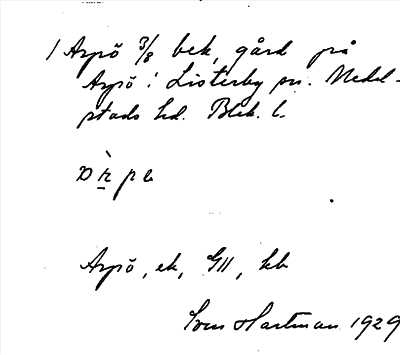 1 Arpö 3/8 bek, gård på
Arpö i Listerby sn. Medel-
stads hd. Blek. l.
Arpö, ek, GII, kb
Sven Hartman 1929